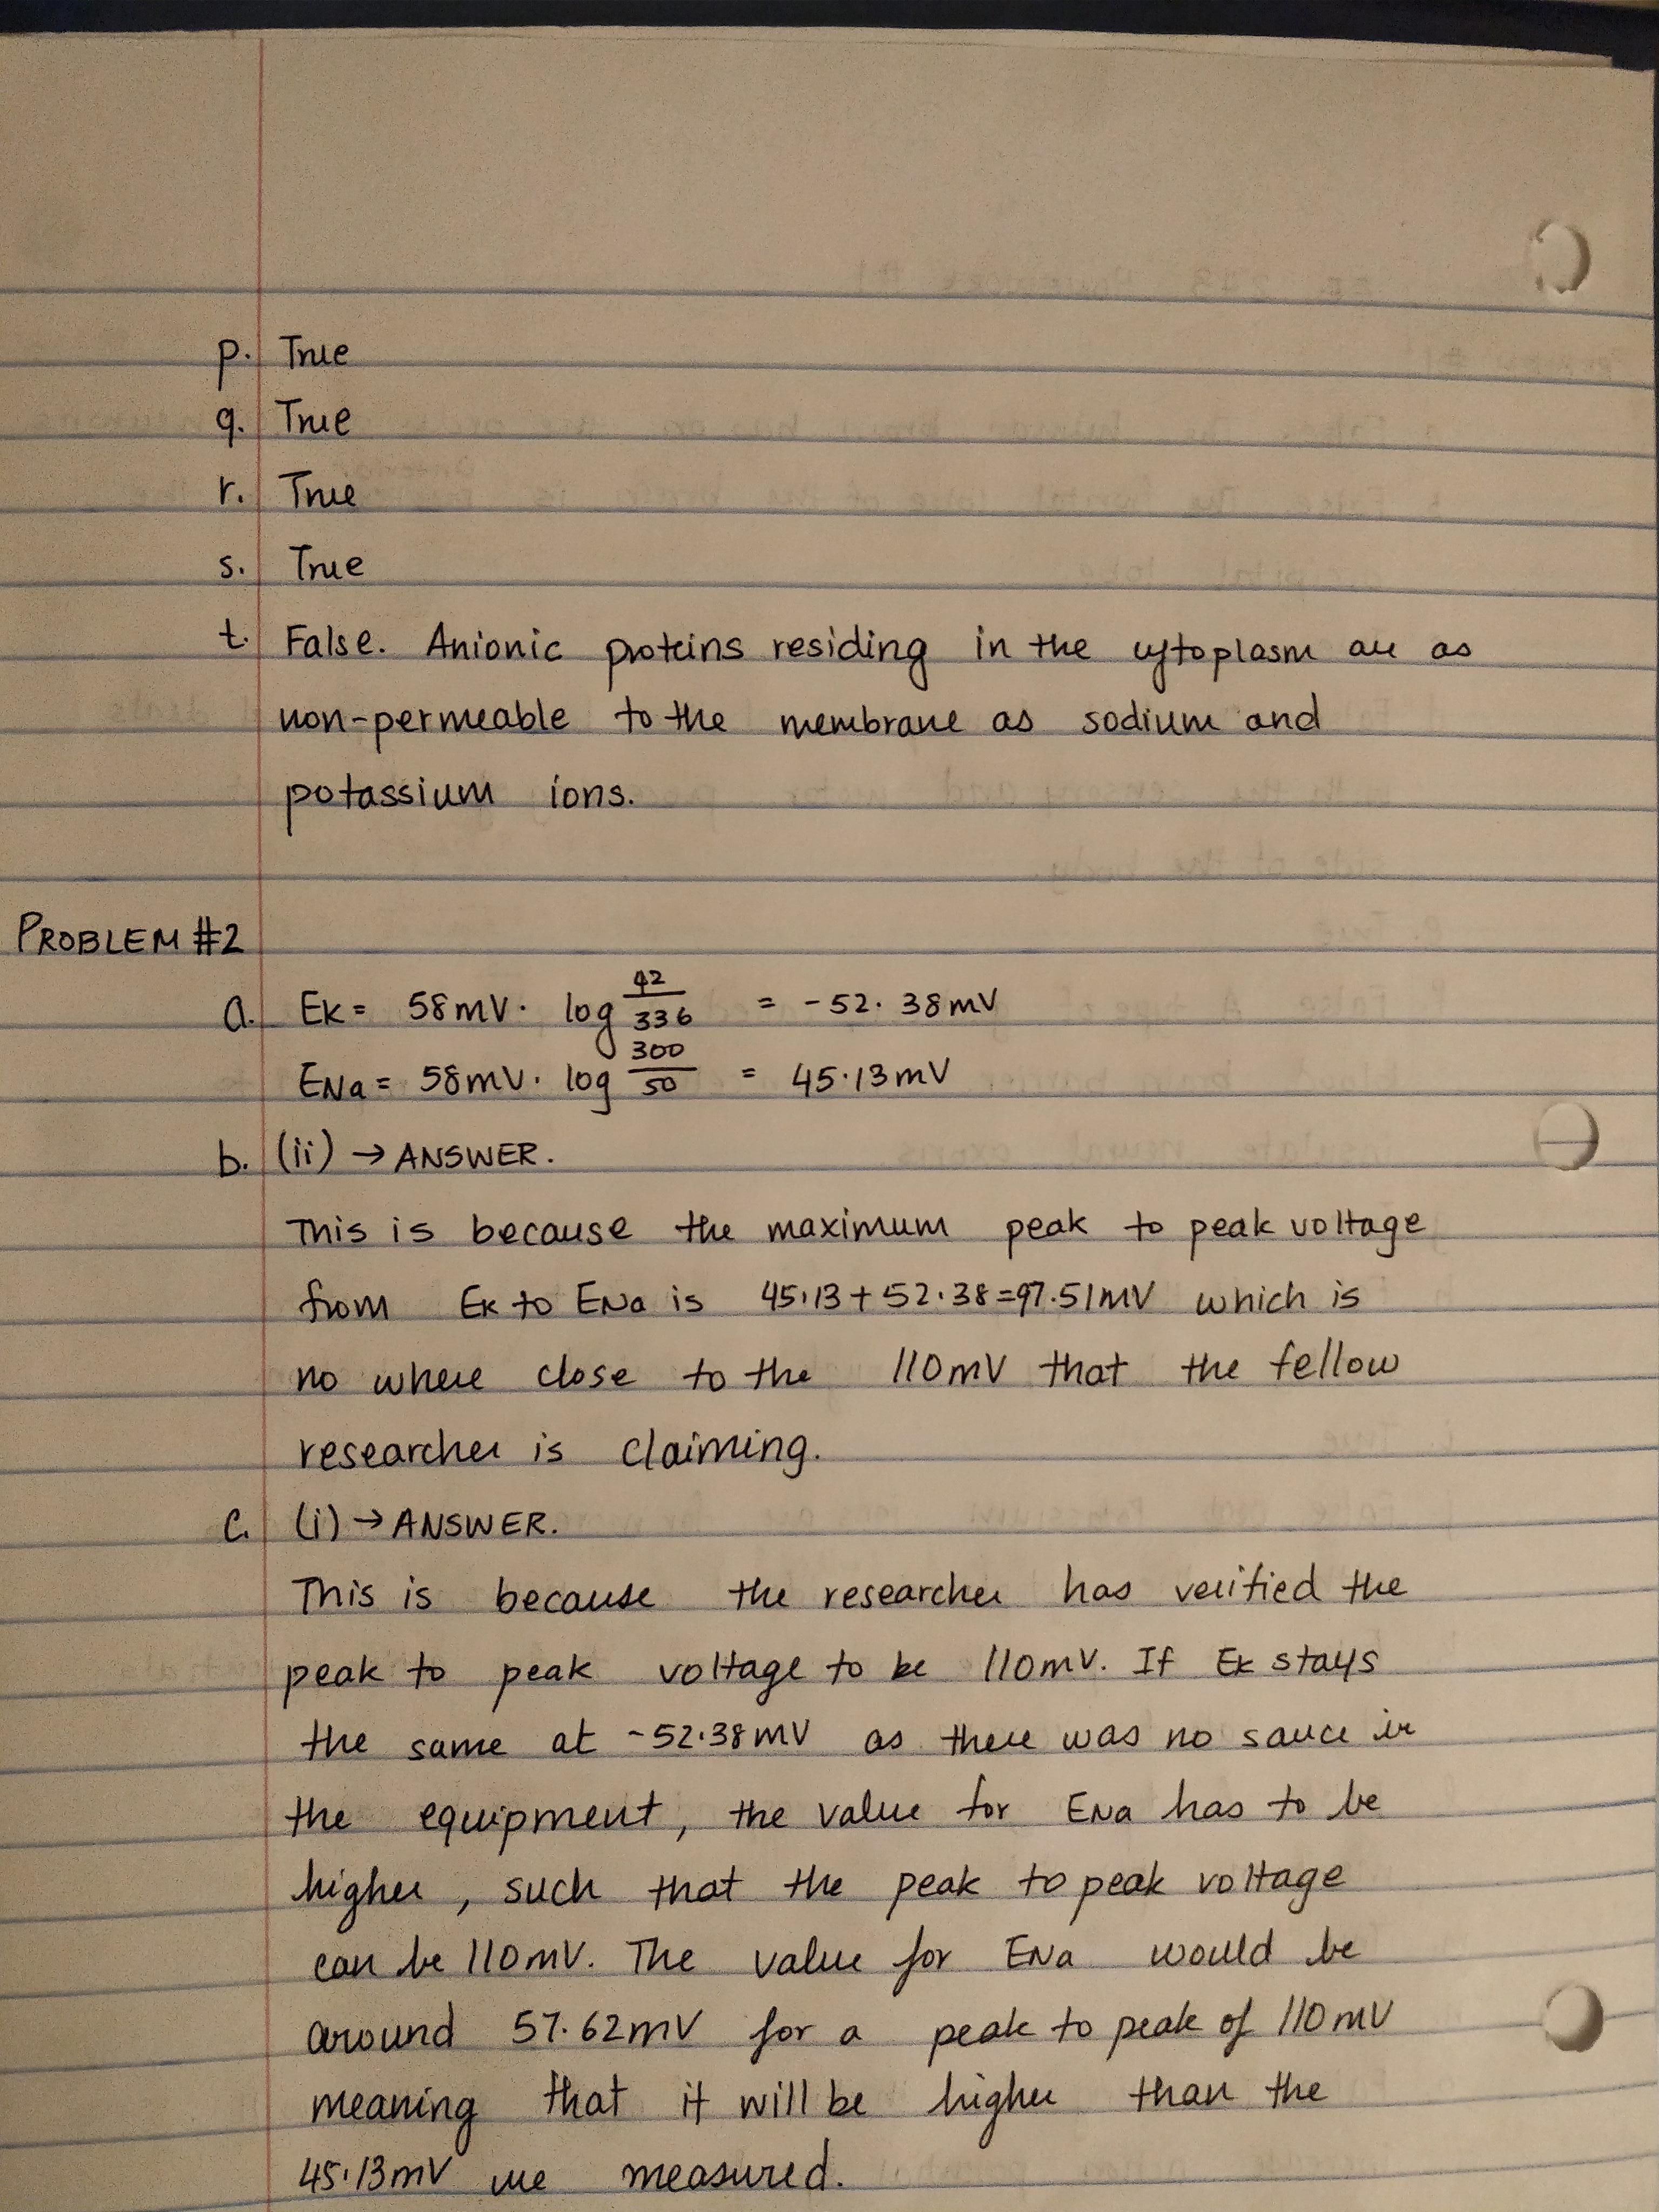 p. True
q. True
r. True
s. True
t. False. Anionic proteins residing in the cytoplasm are as
non-permeable to the membrane as sodium and
potassium ions.
PROBLEM #2
a. EK = 58mV · log 42/336 = -52.38mV
ENa = 58mV · log 300/50 = 45.13mV
b. (ii) → ANSWER.
This is because the maximum peak to peak voltage
from EK to ENa is 45.13 + 52.38 = 97.51mV which is
no where close to the 110mV that the fellow
researcher is claiming.
c. (i) → ANSWER.
This is because the researcher has verified the
peak to peak voltage to be 110mV. If EK stays
the same at -52.38mV as there was no sauce in
the equipment, the value for ENa has to be
higher, such that the peak to peak voltage
can be 110mV. The value for ENa would be
around 57.62mV for a peak to peak of 110mV
meaning that it will be higher than the
45.13mV we measured.